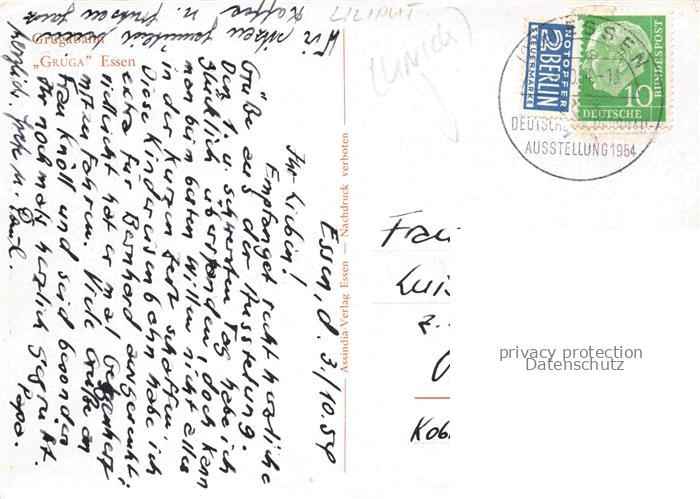 Grugabahn
„GRUGA" Essen
Assindia-Verlag Essen — Nachdruck verboten
LILIPUT
Essen, d. 3./10.54
Ihr Lieben!
Empfanget recht herzliche
Grüße aus der Ausstellung.
Den 1. u. schwersten Tag habe ich
glücklich überstanden, doch kann
man beim besten Willen nicht alles
in der kurzen Zeit schaffen.
Diese Kindereisenbahn habe ich
extra für Bernhard ausgesucht:
vielleicht hat er mal Gelegenheit
mitzufahren. Viele Grüße an
Frau Knöll und seid besonders
Ihr nochmals herzlich gegrüßt.
Papa.
herzlich. Grüße u. Paul.
Wir sitzen gemütlich beim
Kaffee u.
ESSEN
DEUTSCHE
AUSSTELLUNG 1954
NOTOPFER
2 BERLIN
STEUERMARKE
DEUTSCHE
BUNDESPOST
10
Frau
Luis
2.
Kob
privacy protection
Datenschutz